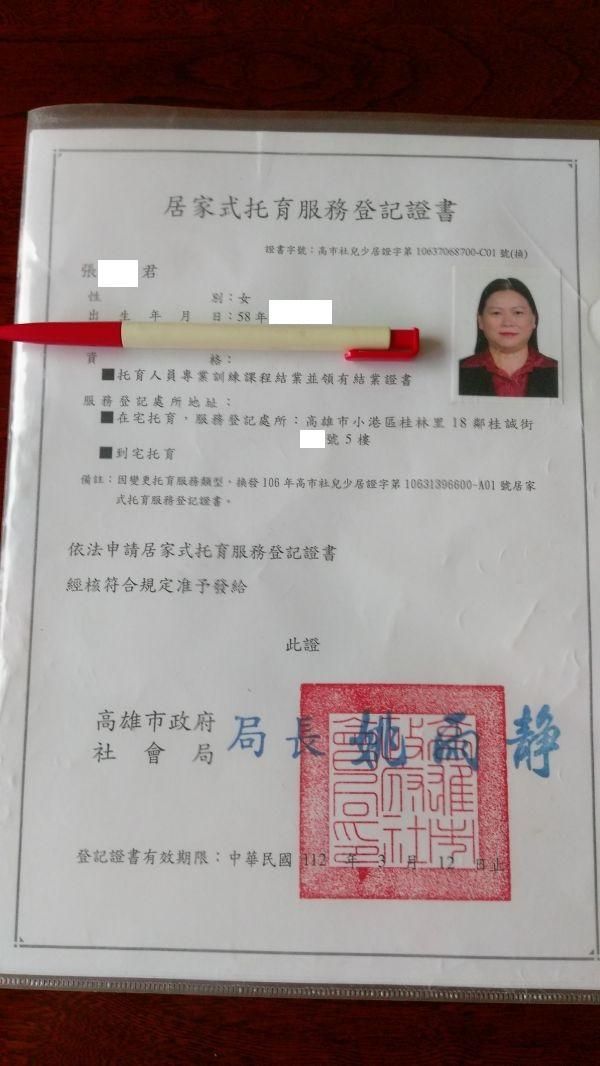 居家式托育服務登記證書
證書字號：高市社兒少居證字第 10637068700-C01 號(換)
張 君
性 別：女
出 生 年 月 日：58 年
資 格：
■托育人員專業訓練課程結業並領有結業證書
服務登記處所地址：
■在宅托育，服務登記處所：高雄市小港區桂林里 18 鄰桂誠街
號 5 樓
■到宅托育
備註：因變更托育服務類型，換發 106 年高市社兒少居證字第 10631396600-A01 號居家
式托育服務登記證書。
依法申請居家式托育服務登記證書
經核符合規定准予發給
此證
高雄市政府
社會局
局長 姚雨靜
高雄市政府社會局印
登記證書有效期限：中華民國 112 年 3 月 12 日止